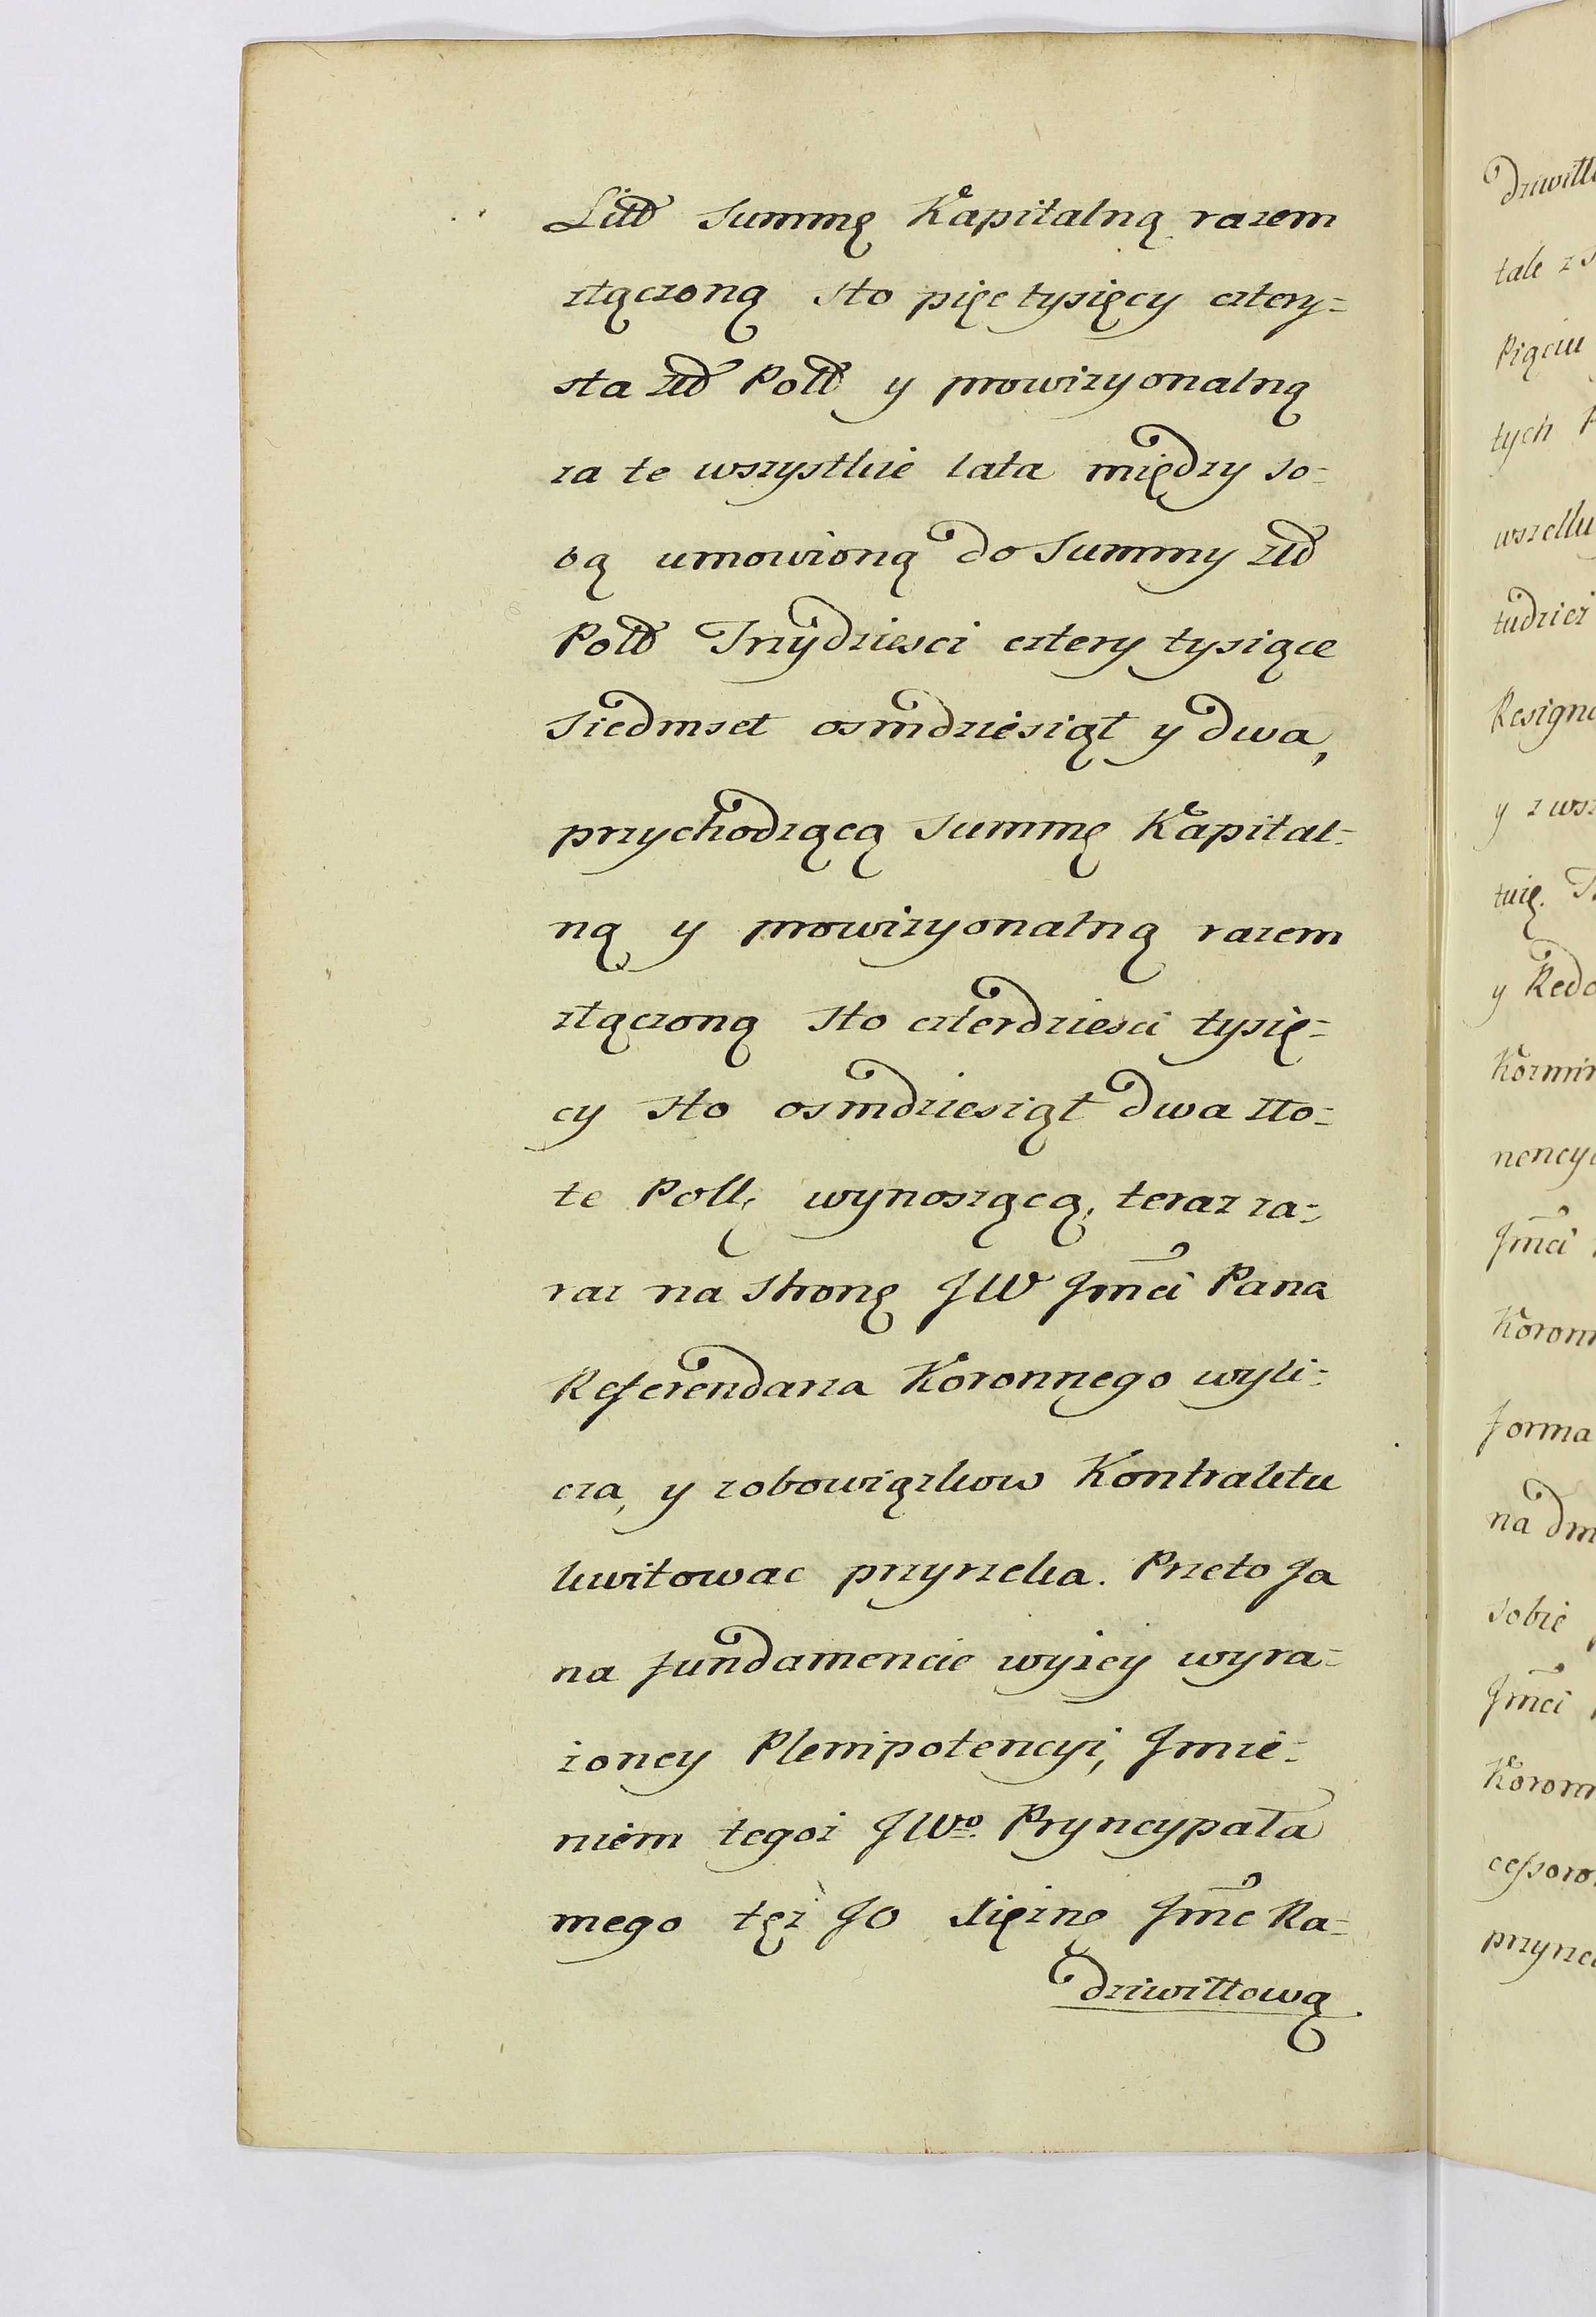 Littd Summę Kapitalną razem
złączoną sto pięc tysięcy cztery=
sta złłd Polld y prowizyonalną
za te wszystkie lata między so=
bą umowioną do Summy złłd
Polld Trzydziesci cztery tysiące
Siedmset osmdziesiąt y dwa,
przychodzącą Summę Kapital=
ną y prowizyonalną razem
złączoną Sto czterdziesci tysię=
cy sto osmdziesiąt dwa zło=
te Poll; wynoszącą, teraz za=
raz na Stronę JW Jmci Pana
Referendarza Koronnego wyli=
cza, y zobowiązkow Kontraktu
kwitowac przyrzeka. Przeto Ja
na fundamencie wyżey wyra=
żoney Plenipotencyi, Jmie=
niem tegoż JWo. Pryncypała
mego też JO Xiężnę Jmc Ra=
dziwiłłową
dziwiłł
tale z
Pięciu
tych
wszelk
tudzież
Resign
y z wsz
tuię.
y Red
Kozmi
nency
Jmci
Koron
forma
na dm
sobie
Jmci
Koron
cessoro
przyrze